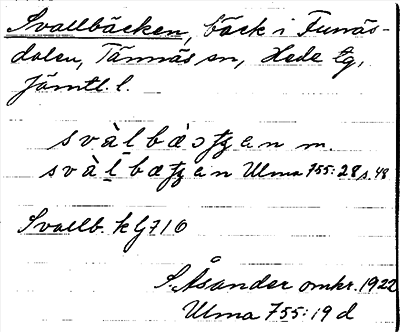 Svallbäcken, bäck i Funäs-
dalen, Tännäs sn, Hede tg,
Jämtl. l.
svàḷbæ̀ɔꞎɡen m.
svàḷbæꞎɡen Ulma 755:28 s. 48
Svallb. k G710
S. Åsander omkr. 1922
Ulma 755:19 d